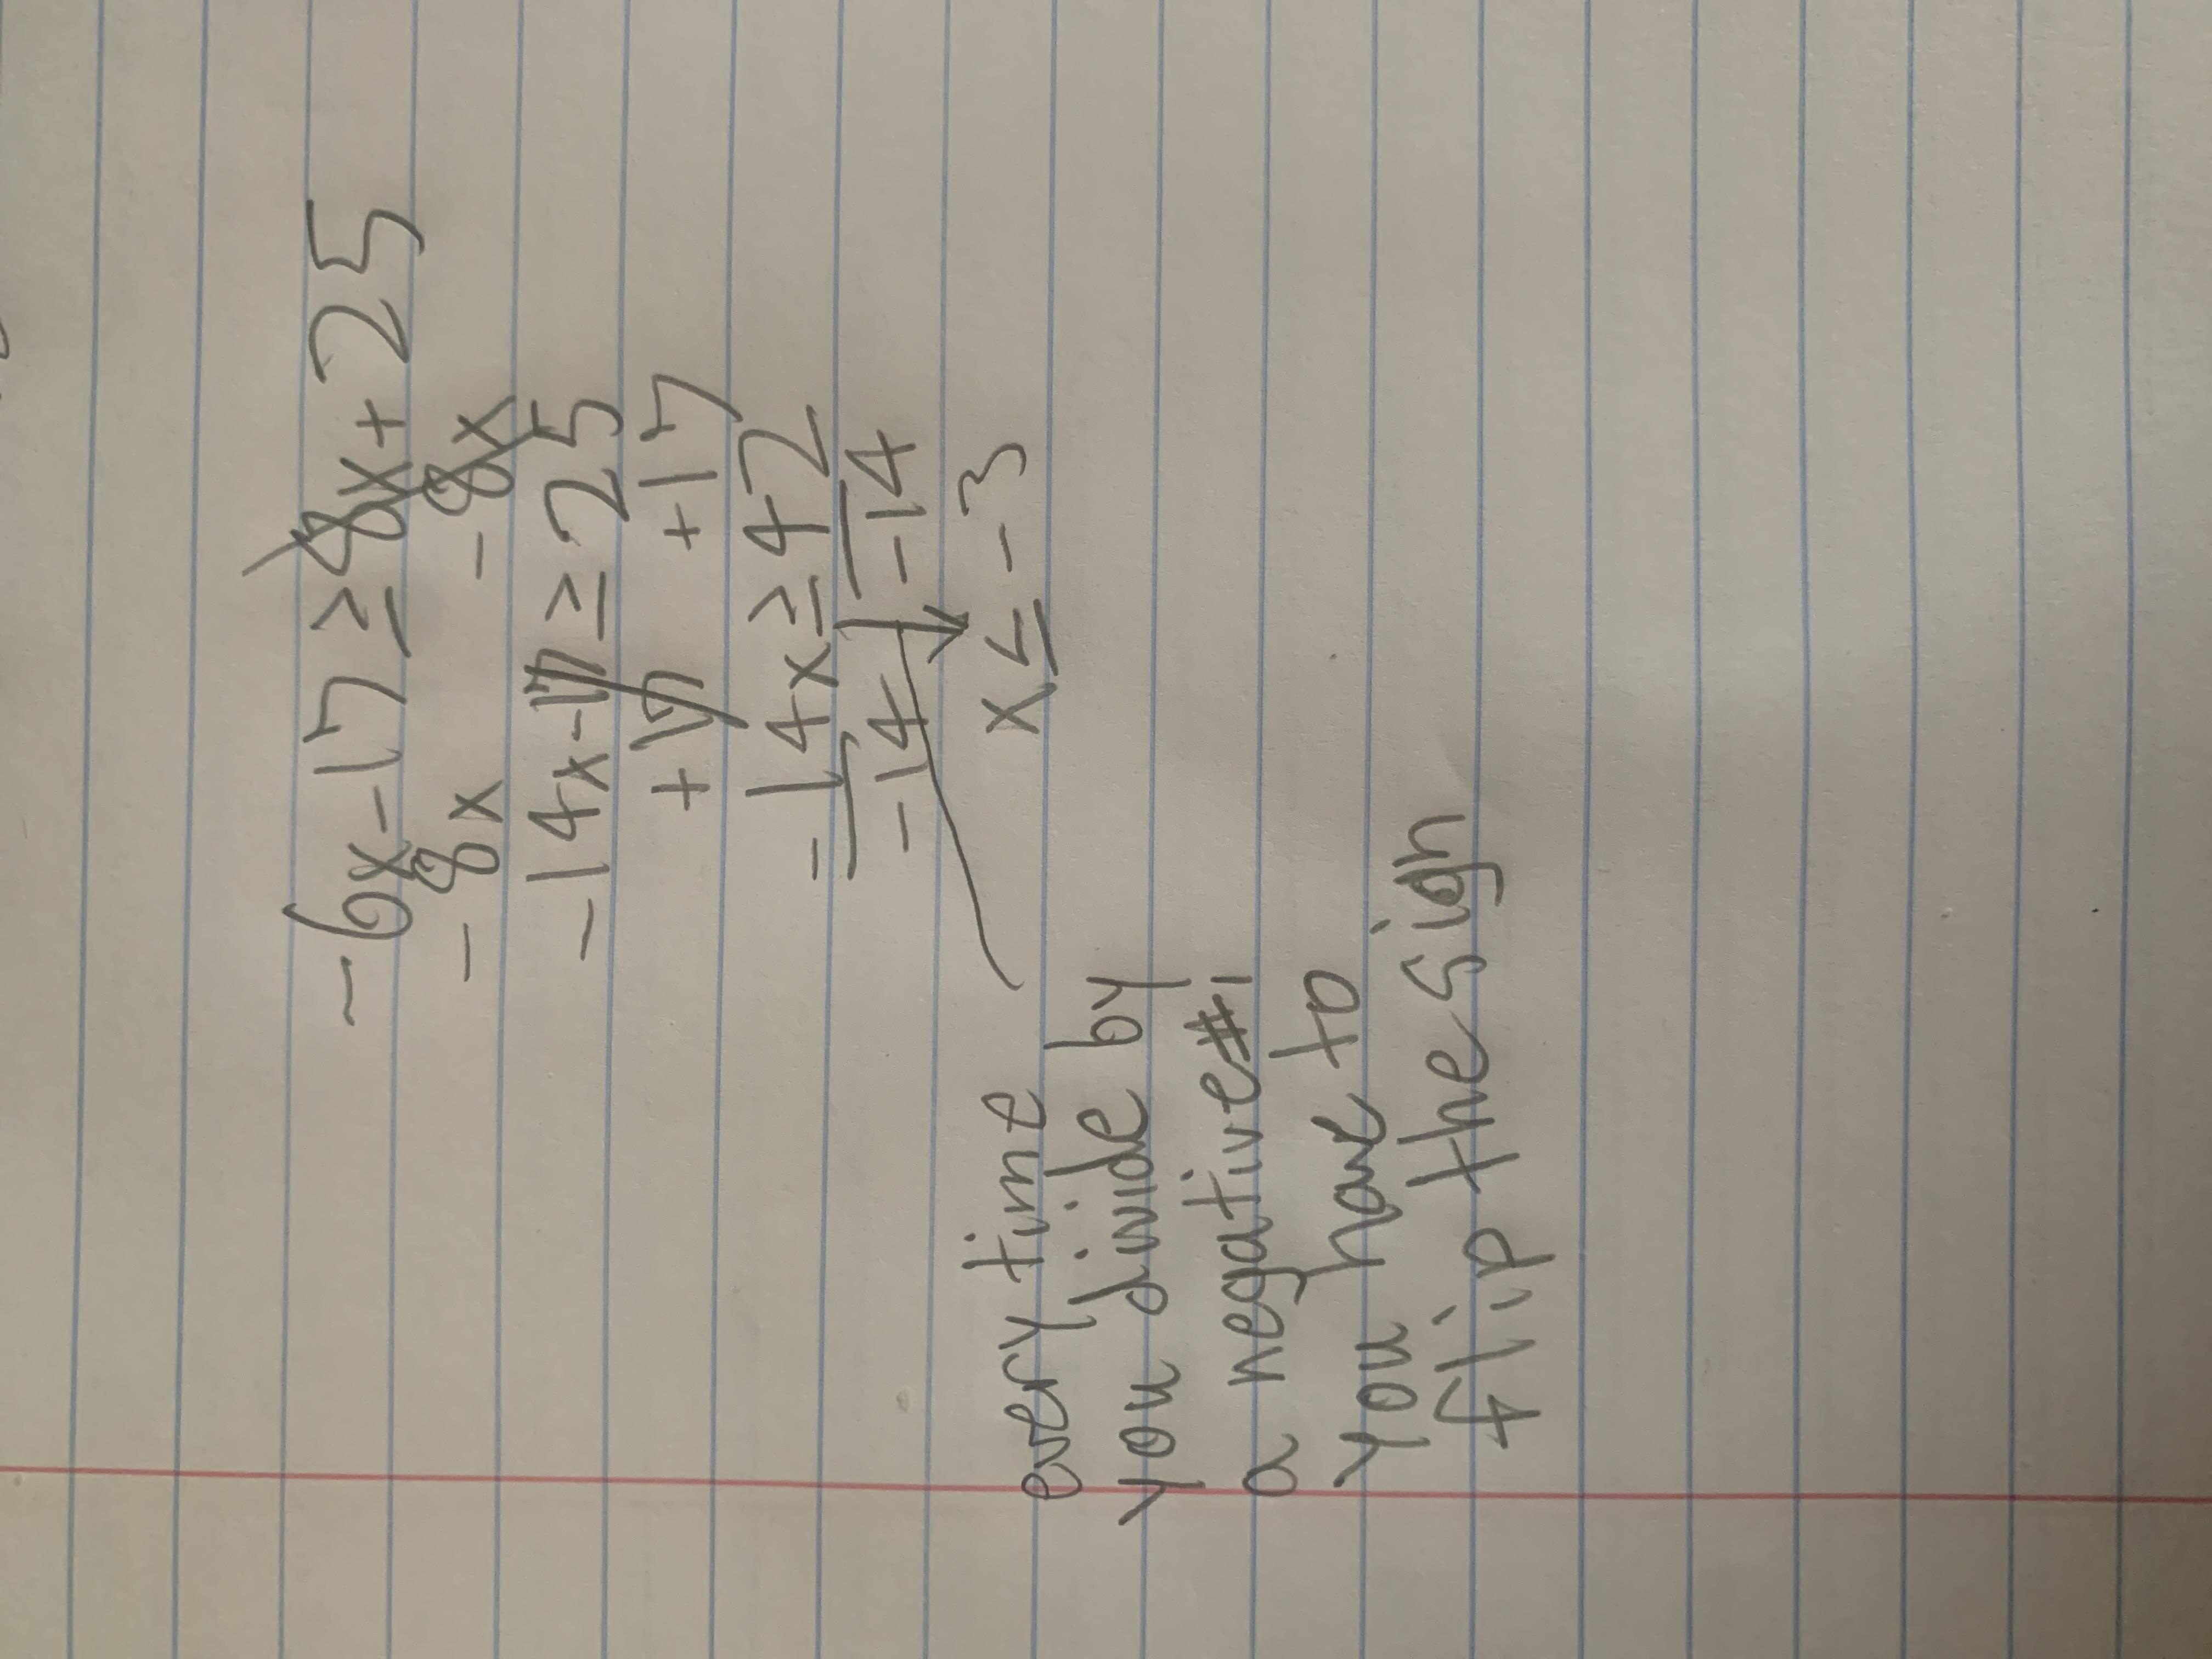 -6x-17≥8x+25
-8x -8x
-14x-17≥25
+17 +17
-14x≥42
-14 -14
x≤-3
every time
you divide by
a negative #,
you have to
flip the sign